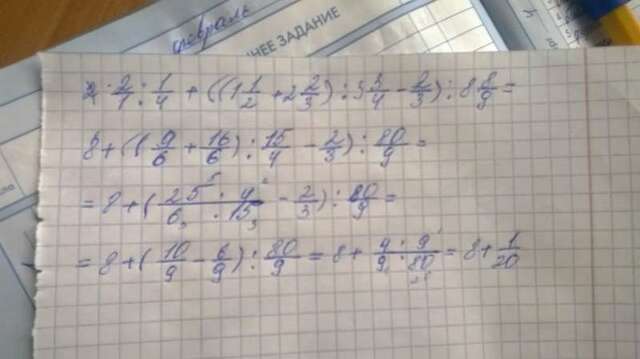 февраль
НЕЕ ЗАДАНИЕ
2/1 : 1/4 + ((1 1/2 + 2 2/3) : 3 3/4 - 2/3) : 8 8/9 =
8 + ((9/6 + 16/6) : 15/4 - 2/3) : 80/9 =
= 8 + (25 · 4/6 · 15 - 2/3) : 80/9 =
= 8 + (10/9 - 6/9) : 80/9 = 8 + 4/9 : 9/80 = 8 + 1/20